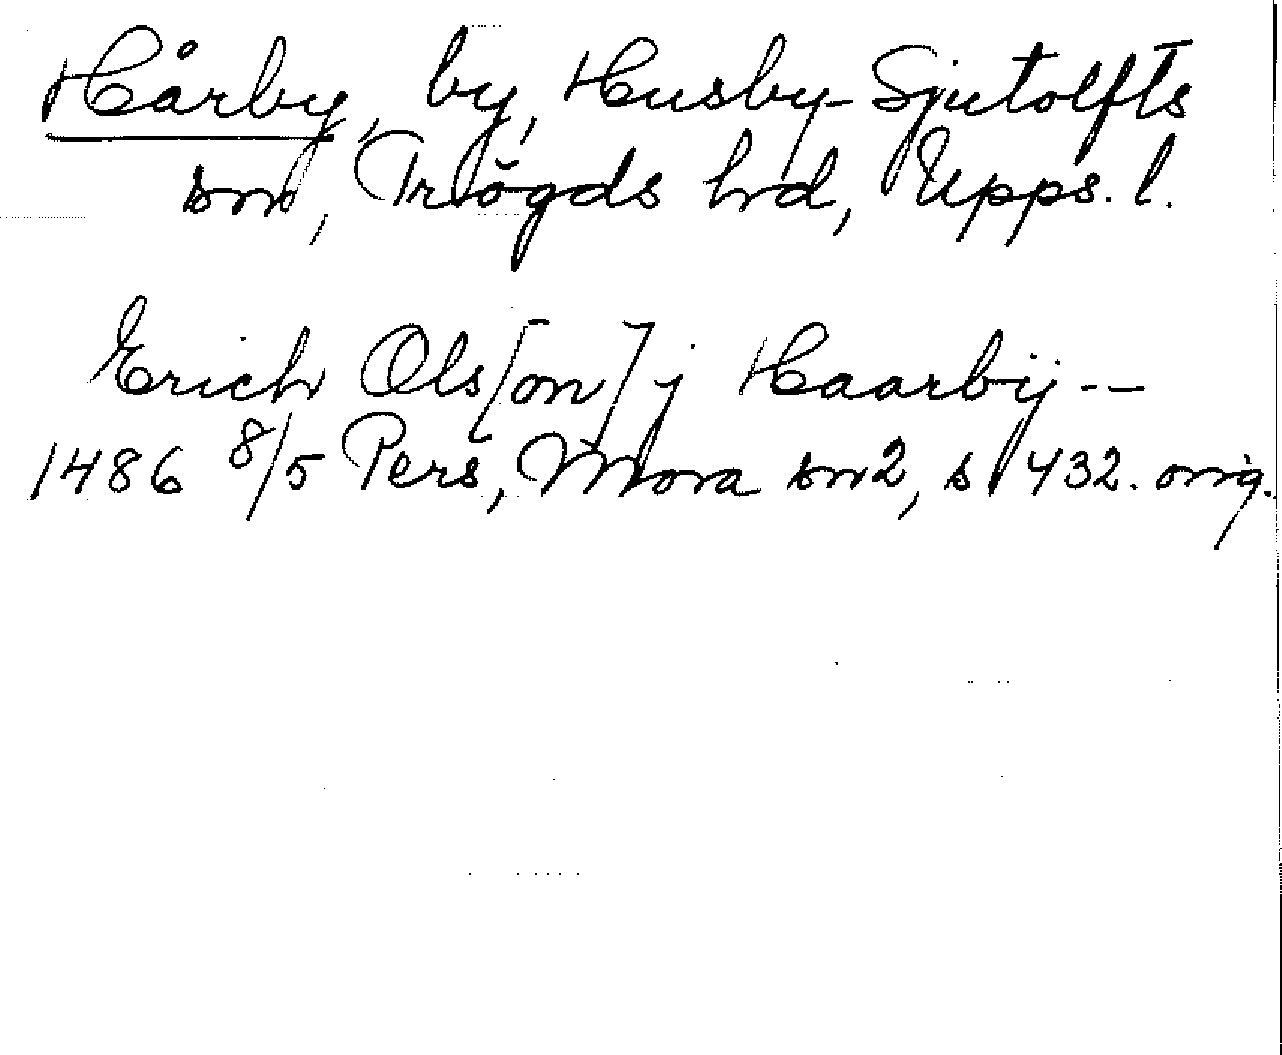 Hårby, by, Husby-Sjutolfts
sn, Trögds hd, Upps. l.
Erich Ols[on] j Haarbÿ --
1486 8/5 Pers, Mora sn 2, s 432. orig.